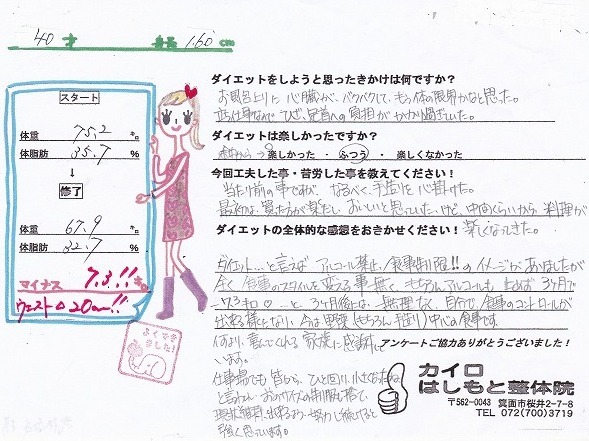 40才 身長 160cm
スタート
体重 75.2 キロ
体脂肪 35.7 %
↓
修了
体重 67.9 キロ
体脂肪 32.7 %
マイナス 7.3!!キロ
ウエスト△20cm!!
よくできました!
ダイエットをしようと思ったきかけは何ですか？
お風呂上りに心臓が、バクバクして、もう体の限界かなと思った。
立仕事なので ひざ、足首への負担がかかり過ぎていた。
ダイエットは楽しかったですか？
楽しかった ・ ふつう ・ 楽しくなかった
今回工夫した事・苦労した事を教えてください！
当たり前の事ですが、なるべく、手作りを心掛けた。
最初は、買った方が楽だし、おいしいと思っていたけど、中間くらいから、料理が
楽しくなってきた。
ダイエットの全体的な感想をおきかせください！
ダイエット…と言えば アルコール禁止/食事制限!!のイメージがありましたが
全く 食事のスタイルを変える事無く、もちろんアルコールも 止めず 3ヶ月で
-7.3キロ♡…と、3ヶ月後には、無理なく、自分で、食事のコントロールが
出来る様になり、今は野菜(もちろん手作り)中心の食事です。
何より、喜んでくれる 家族に感謝して
います。
仕事場でも 皆から、ひと回り小さくなったね
と言われ
努力し続けると
強く思っています。
アンケートご協力ありがとうございました！
カイロ
はしもと整体院
〒562-0043 箕面市桜井2-7-8
TEL 072(700)3719